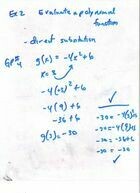 Ex 2 Evaluate a polynomial
function
- direct substitution
g(x) = -4x² + 6
x = 3
-4(3)² + 6
-4(9) + 6
-36 + 6
g(3) = -30
✓
-30 = -4(3)² + 6
-30 = -4(9) + 6
-30 = -36 + 6
-30 = -30